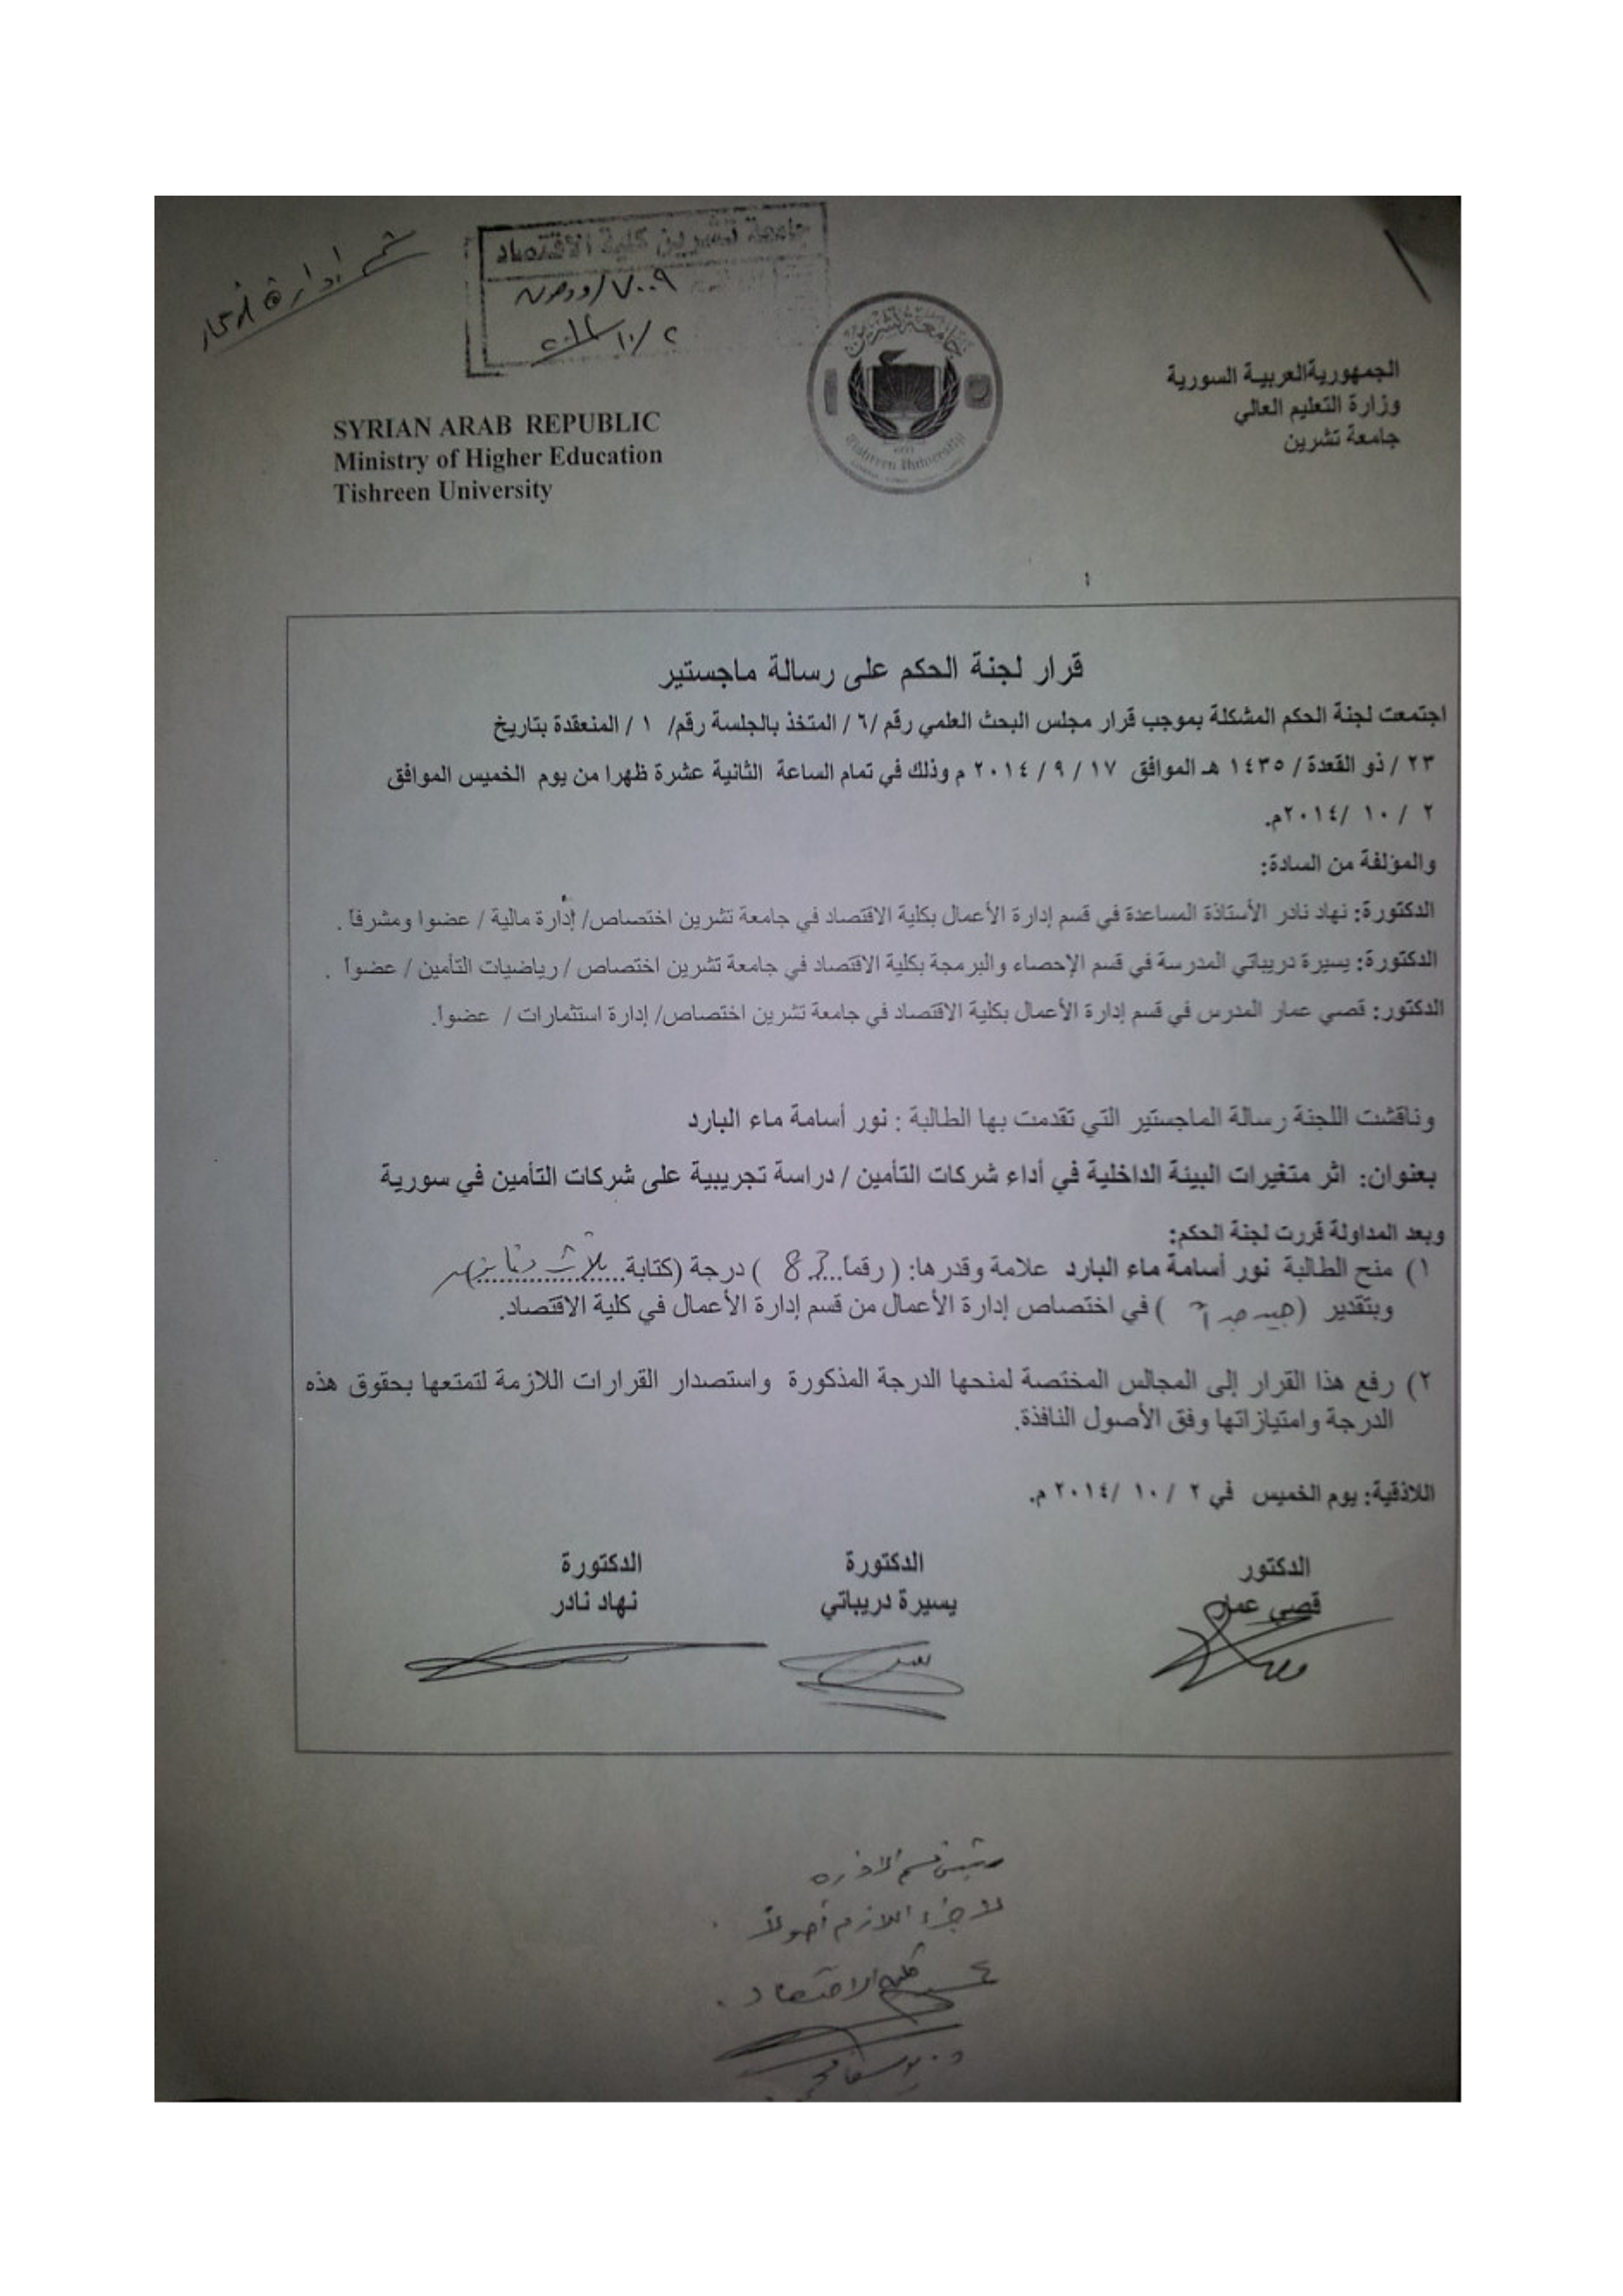 قسم إدارة أعمال
جامعة تشرين كلية الاقتصاد
٧٠٠٩/ووص
٢/١٠/٢٠١٤
جامعة تشرين
Tishreen University
SYRIAN ARAB REPUBLIC
Ministry of Higher Education
Tishreen University
الجمهورية العربية السورية
وزارة التعليم العالي
جامعة تشرين
قرار لجنة الحكم على رسالة ماجستير
اجتمعت لجنة الحكم المشكلة بموجب قرار مجلس البحث العلمي رقم /٦/ المتخذ بالجلسة رقم/ ١ / المنعقدة بتاريخ
٢٣ / ذو القعدة / ١٤٣٥ هـ الموافق ١٧ / ٩ / ٢٠١٤ م وذلك في تمام الساعة الثانية عشرة ظهرا من يوم الخميس الموافق
٢ / ١٠ /٢٠١٤م.
والمؤلفة من السادة:
الدكتورة: نهاد نادر الأستاذة المساعدة في قسم إدارة الأعمال بكلية الاقتصاد في جامعة تشرين اختصاص/ إدارة مالية / عضوا ومشرفاً .
الدكتورة: يسيرة دريباتي المدرسة في قسم الإحصاء والبرمجة بكلية الاقتصاد في جامعة تشرين اختصاص / رياضيات التأمين / عضواً .
الدكتور: قصي عمار المدرس في قسم إدارة الأعمال بكلية الاقتصاد في جامعة تشرين اختصاص/ إدارة استثمارات / عضواً.
وناقشت اللجنة رسالة الماجستير التي تقدمت بها الطالبة : نور أسامة ماء البارد
بعنوان: اثر متغيرات البيئة الداخلية في أداء شركات التأمين / دراسة تجريبية على شركات التأمين في سورية
وبعد المداولة قررت لجنة الحكم:
١) منح الطالبة نور أسامة ماء البارد علامة وقدرها: ( رقماً...83 ) درجة (كتابة ثلاث وثمانين)
وبتقدير (جيد جداً ) في اختصاص إدارة الأعمال من قسم إدارة الأعمال في كلية الاقتصاد.
٢) رفع هذا القرار إلى المجالس المختصة لمنحها الدرجة المذكورة واستصدار القرارات اللازمة لتمتعها بحقوق هذه
الدرجة وامتيازاتها وفق الأصول النافذة.
اللاذقية: يوم الخميس في ٢ / ١٠ /٢٠١٤ م.
الدكتور
قصي عمار
الدكتورة
يسيرة دريباتي
الدكتورة
نهاد نادر
رئيس قسم الادارة
لاجراء اللازم أصولاً
عميد كلية الاقتصاد